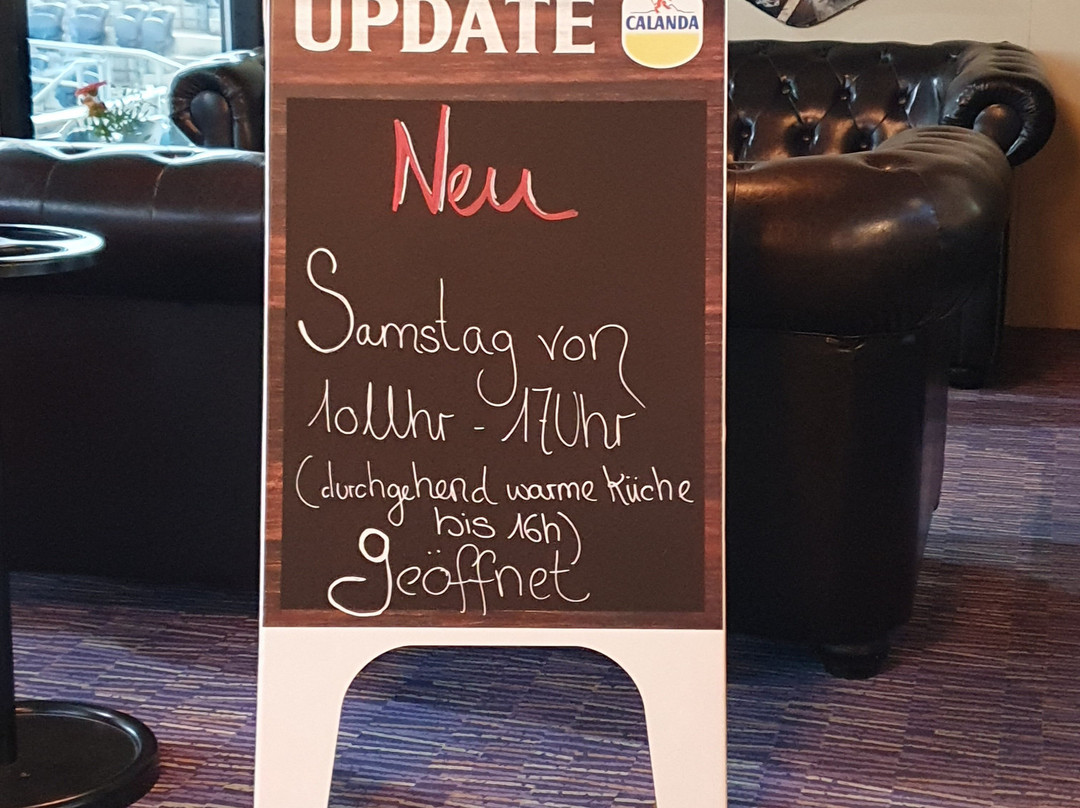 UPDATE
CALANDA
Neu
Samstag von
10Uhr - 17Uhr
(durchgehend warme Küche
bis 16h)
geöffnet